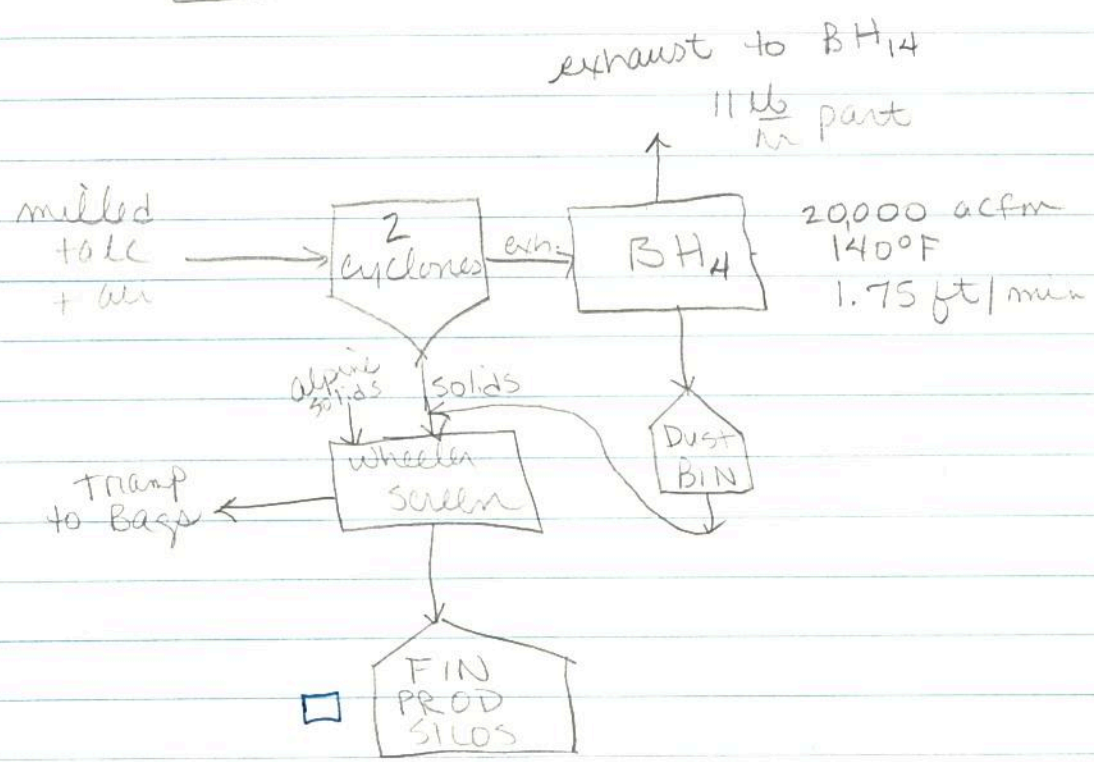 exhaust to BH14
11 lb/hr part
milled
talc
+ air
2
cyclones
exh.
BH4
20,000 acfm
140°F
1.75 ft/min
alpine
solids
solids
Dust
BIN
wheeler
screen
tramp
to Bags
FIN
PROD
SILOS